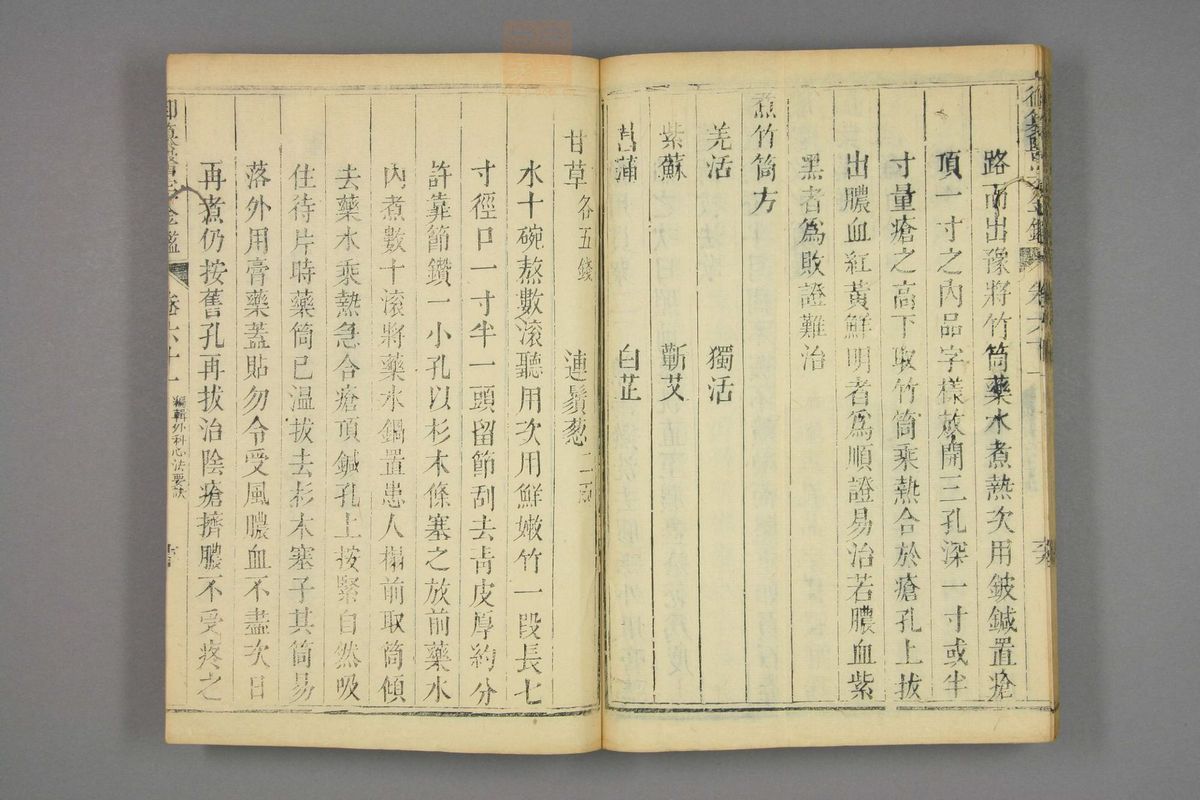 路而出豫將竹筒藥水煮熱次用鈹鍼置瘡
頂一寸之內品字樣放開三孔深一寸或半
寸量瘡之高下取竹筒乘熱合於瘡孔上拔
出膿血紅黃鮮明者爲順證易治若膿血紫
黑者爲敗證難治
煮竹筒方
羌活 獨活
紫蘇 蘄艾
菖蒲 白芷
甘草各五錢 連鬚葱二兩
水十碗熬數滚聽用次用鮮嫩竹一段長七
寸徑口一寸半一頭留節刮去青皮厚約分
許靠節鑽一小孔以杉木條塞之放前藥水
內煮數十滚將藥水鍋置患人榻前取筒傾
去藥水乘熱急合瘡頂鍼孔上按緊自然吸
住待片時藥筒已温拔去杉木塞子其筒易
落外用膏藥蓋貼勿令受風膿血不盡次日
再煮仍按舊孔再拔治陰瘡擠膿不受疼之
卷六十一 編輯外科心法要訣